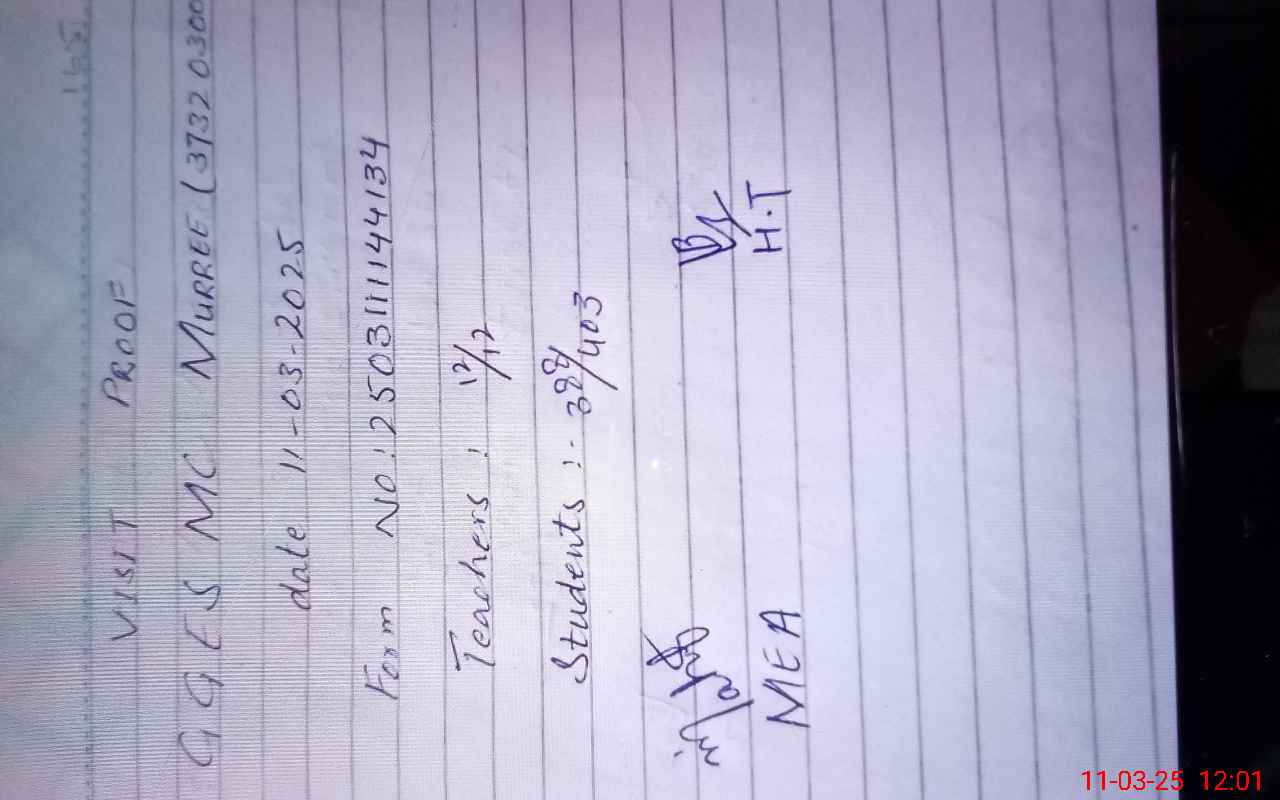 165
VISIT PROOF
GGES MC MURREE (37320300
date 11-03-2025
Form NO: 250311144134
Teachers : 12/12
Students : 388/403
H.T
MEA
11-03-25 12:01